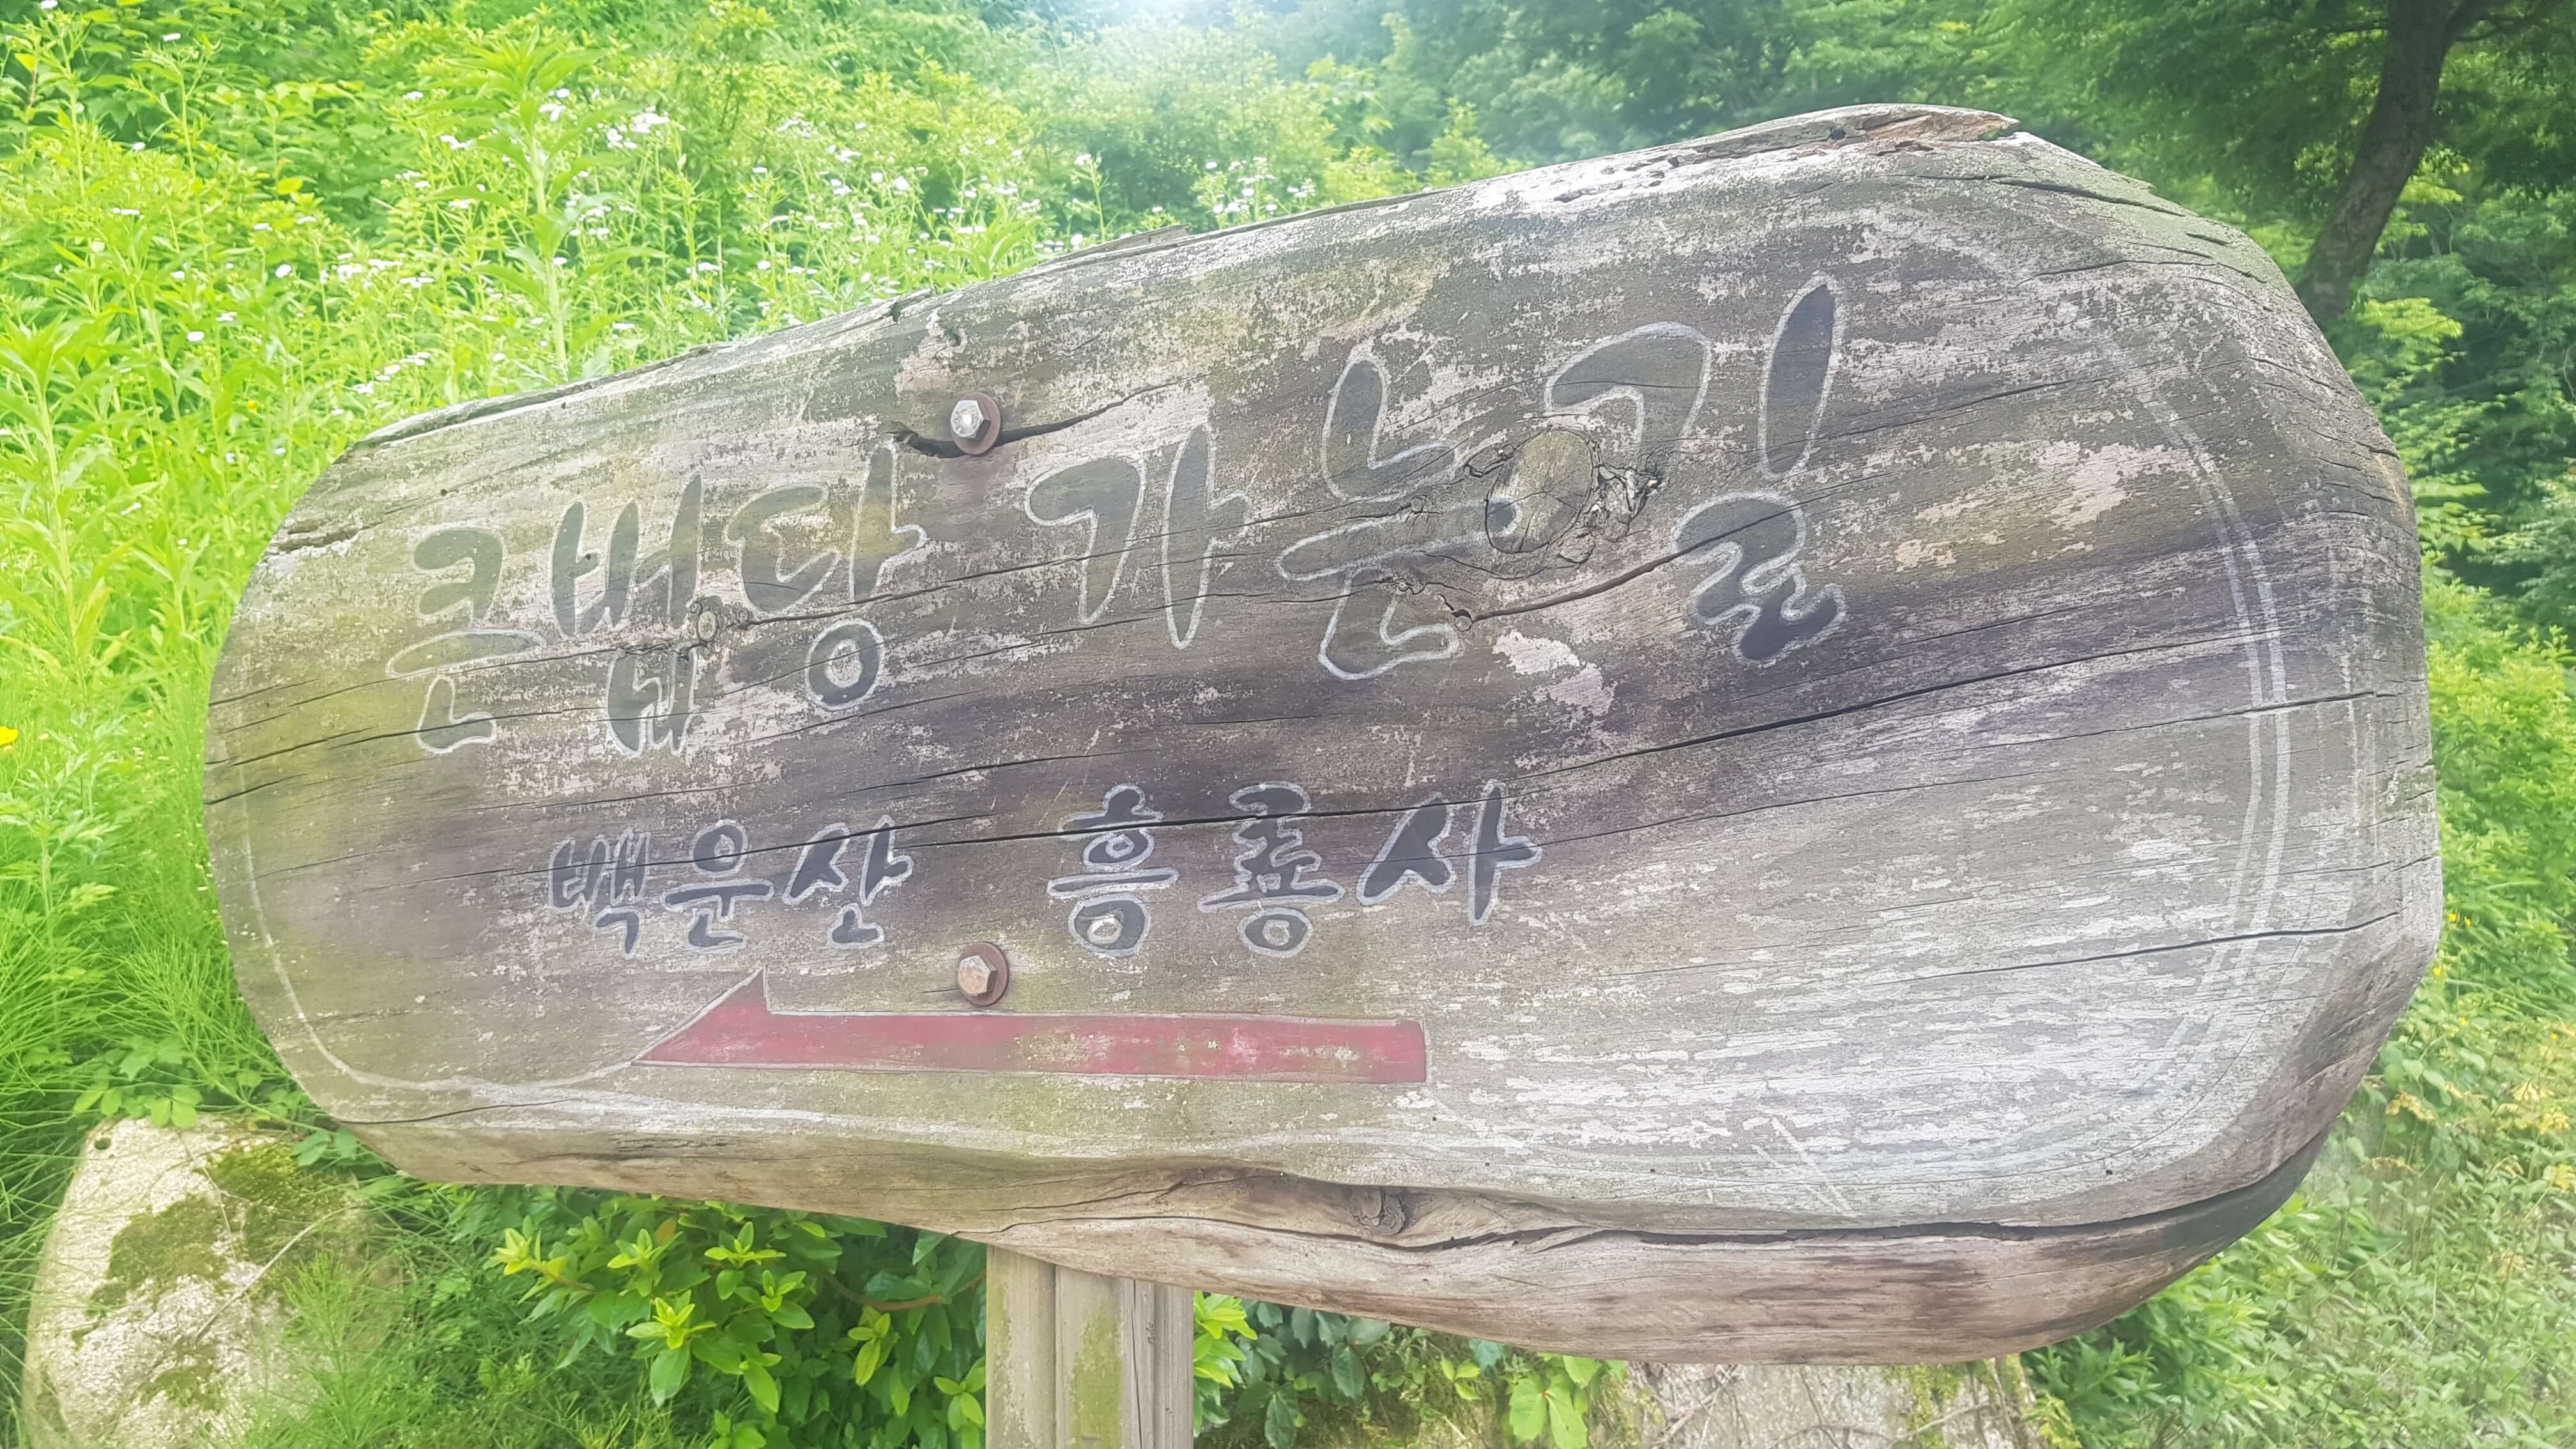 큰법당 가는길
백운산 흥룡사